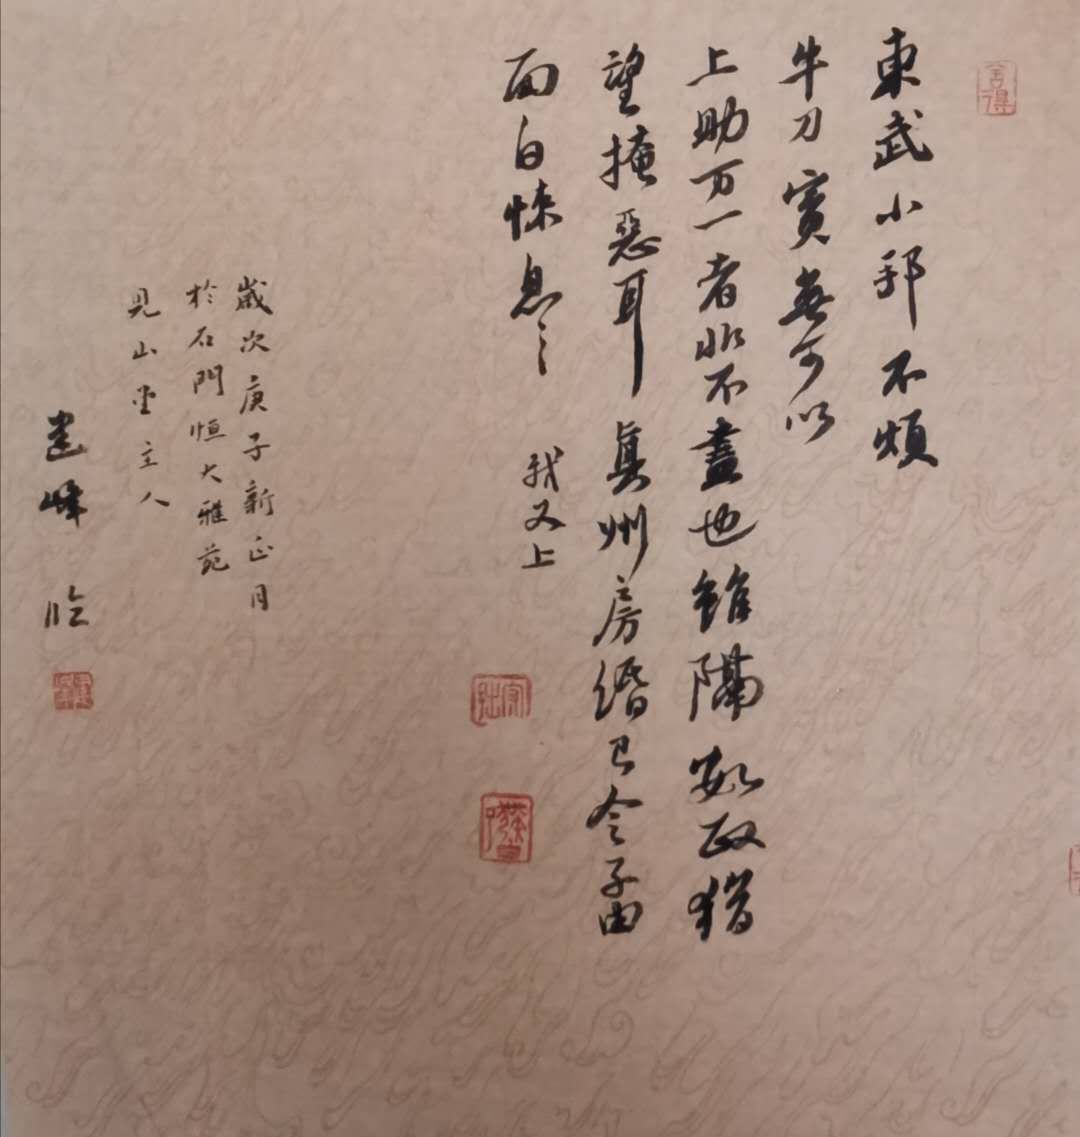 舍得
東武小邦不煩
牛刀實無可以
上助万一者非不盡也雖隔數政猶
望掩惡耳真州房緡已令子由
面白悚息〻
軾又上
歲次庚子新正月
於石門恒大雅苑
見山堂主人
建峰臨